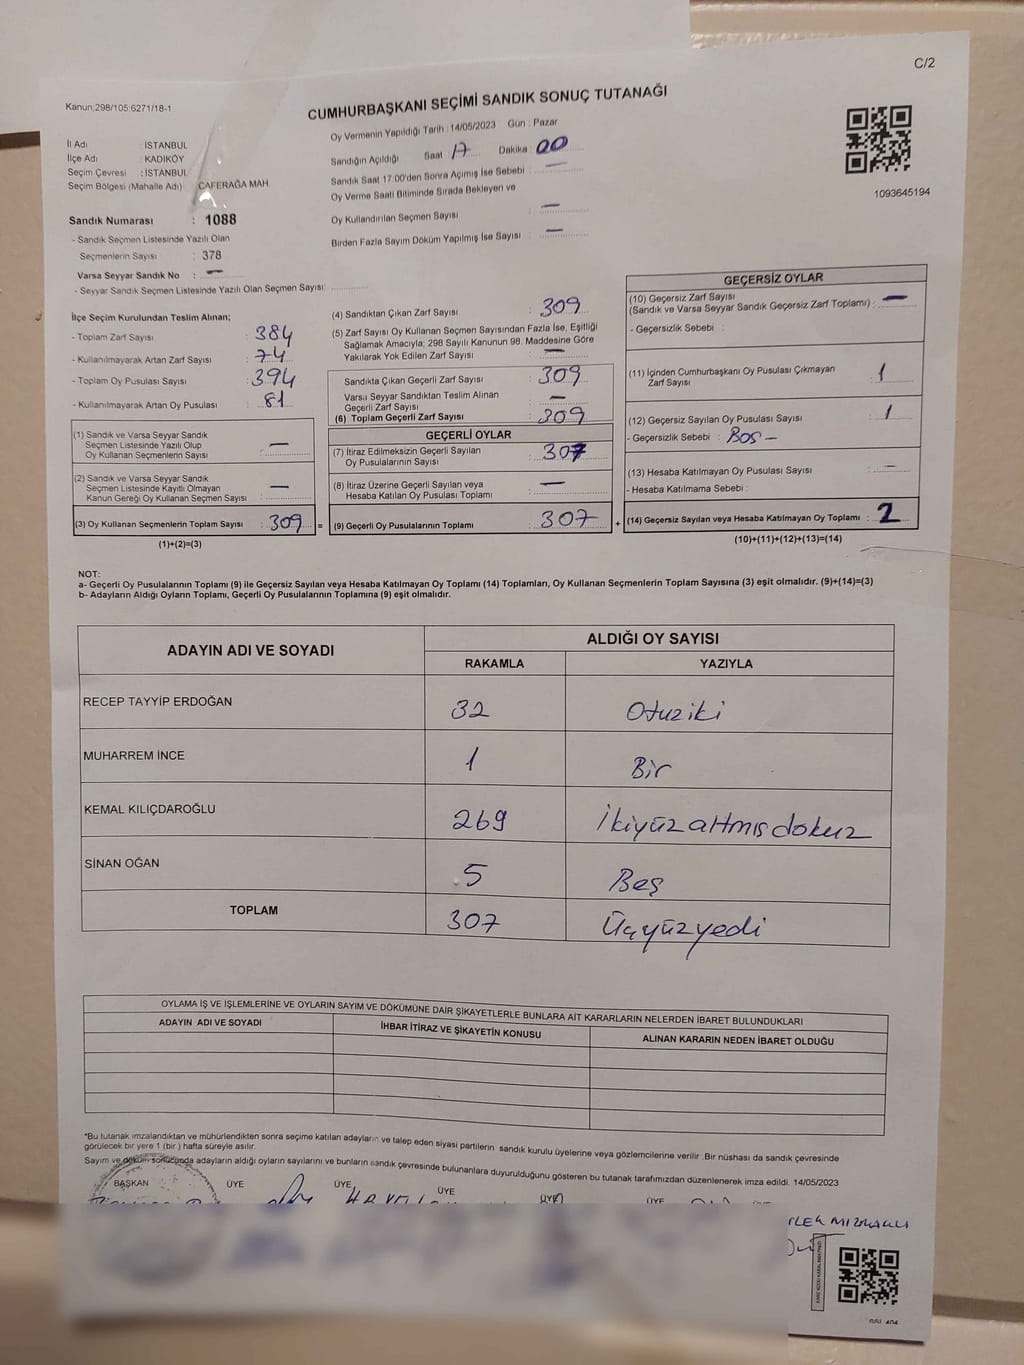 C/2
Kanun;298/105;6271/18-1
CUMHURBAŞKANI SEÇİMİ SANDIK SONUÇ TUTANAĞI
Oy Vermenin Yapıldığı Tarih : 14/05/2023 Gün : Pazar
İl Adı İSTANBUL
İlçe Adı KADIKÖY
Seçim Çevresi : İSTANBUL
Seçim Bölgesi (Mahalle Adı) CAFERAĞA MAH.
Sandık Numarası : 1088
- Sandık Seçmen Listesinde Yazılı Olan
Seçmenlerin Sayısı : 378
Varsa Seyyar Sandık No : —
- Seyyar Sandık Seçmen Listesinde Yazılı Olan Seçmen Sayısı:
Sandığın Açıldığı Saat 17 Dakika : 00
Sandık Saat 17.00'den Sonra Açımış İse Sebebi : —
Oy Verme Saati Bitiminde Sırada Bekleyen ve
Oy Kullandırılan Seçmen Sayısı : —
Birden Fazla Sayım Döküm Yapılmış İse Sayısı : —
1093645194
İlçe Seçim Kurulundan Teslim Alınan;
- Toplam Zarf Sayısı : 384
- Kullanılmayarak Artan Zarf Sayısı : 74
- Toplam Oy Pusulası Sayısı : 394
- Kullanılmayarak Artan Oy Pusulası : 81
(1) Sandık ve Varsa Seyyar Sandık
Seçmen Listesinde Yazılı Olup
Oy Kullanan Seçmenlerin Sayısı : —
(2) Sandık ve Varsa Seyyar Sandık
Seçmen Listesinde Kayıtlı Olmayan
Kanun Gereği Oy Kullanan Seçmen Sayısı : —
(3) Oy Kullanan Seçmenlerin Toplam Sayısı : 309 =
(1)+(2)=(3)
(4) Sandıktan Çıkan Zarf Sayısı : 309
(5) Zarf Sayısı Oy Kullanan Seçmen Sayısından Fazla İse, Eşitliği
Sağlamak Amacıyla; 298 Sayılı Kanunun 98. Maddesine Göre
Yakılarak Yok Edilen Zarf Sayısı : —
Sandıkta Çıkan Geçerli Zarf Sayısı : 309
Varsa Seyyar Sandıktan Teslim Alınan
Geçerli Zarf Sayısı : —
(6) Toplam Geçerli Zarf Sayısı : 309
GEÇERLİ OYLAR
(7) İtiraz Edilmeksizin Geçerli Sayılan
Oy Pusulalarının Sayısı : 307
(8) İtiraz Üzerine Geçerli Sayılan veya
Hesaba Katılan Oy Pusulası Toplamı : —
(9) Geçerli Oy Pusulalarının Toplamı : 307 +
GEÇERSİZ OYLAR
(10) Geçersiz Zarf Sayısı
(Sandık ve Varsa Seyyar Sandık Geçersiz Zarf Toplamı) : —
- Geçersizlik Sebebi :
(11) İçinden Cumhurbaşkanı Oy Pusulası Çıkmayan
Zarf Sayısı : 1
(12) Geçersiz Sayılan Oy Pusulası Sayısı : 1
- Geçersizlik Sebebi : Boş -
(13) Hesaba Katılmayan Oy Pusulası Sayısı : —
- Hesaba Katılmama Sebebi :
(14) Geçersiz Sayılan veya Hesaba Katılmayan Oy Toplamı : 2
(10)+(11)+(12)+(13)=(14)
NOT:
a- Geçerli Oy Pusulalarının Toplamı (9) ile Geçersiz Sayılan veya Hesaba Katılmayan Oy Toplamı (14) Toplamları, Oy Kullanan Seçmenlerin Toplam Sayısına (3) eşit olmalıdır. (9)+(14)=(3)
b- Adayların Aldığı Oyların Toplamı, Geçerli Oy Pusulalarının Toplamına (9) eşit olmalıdır.
ADAYIN ADI VE SOYADI ALDIĞI OY SAYISI
RAKAMLA YAZIYLA
RECEP TAYYİP ERDOĞAN 32 Otuziki
MUHARREM İNCE 1 Bir
KEMAL KILIÇDAROĞLU 269 İkiyüzaltmışdokuz
SİNAN OĞAN 5 Beş
TOPLAM 307 Üçyüzyedi
OYLAMA İŞ VE İŞLEMLERİNE VE OYLARIN SAYIM VE DÖKÜMÜNE DAİR ŞİKAYETLERLE BUNLARA AİT KARARLARIN NELERDEN İBARET BULUNDUKLARI
ADAYIN ADI VE SOYADI İHBAR İTİRAZ VE ŞİKAYETİN KONUSU ALINAN KARARIN NEDEN İBARET OLDUĞU
*Bu tutanak imzalandıktan ve mühürlendikten sonra seçime katılan adayların ve talep eden siyasi partilerin sandık kurulu üyelerine veya gözlemcilerine verilir .Bir nüshası da sandık çevresinde
görülecek bir yere 1 (bir ) hafta süreyle asılır.
Sayım ve döküm sonucunda adayların aldığı oyların sayılarını ve bunların sandık çevresinde bulunanlara duyurulduğunu gösteren bu tutanak tarafımızdan düzenlenerek imza edildi. 14/05/2023
BAŞKAN ÜYE ÜYE ÜYE ÜYE ÜYE